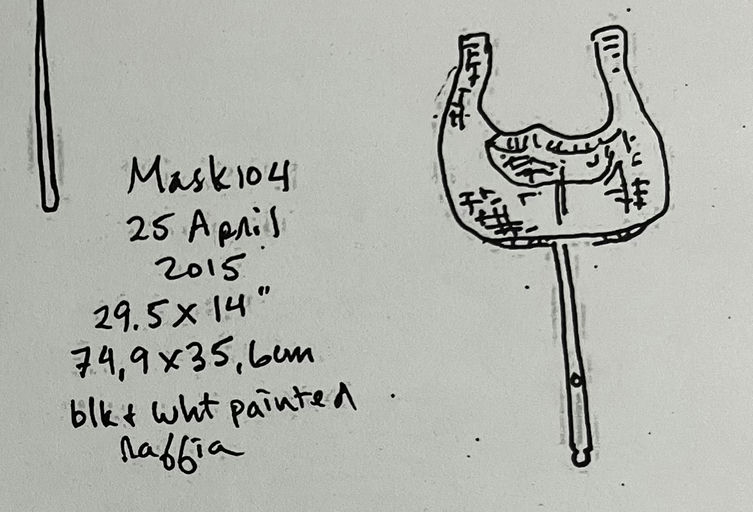 Mask 104
25 April
2015
29.5 x 14"
74,9 x 35,6cm
blk + wht painted
raffia